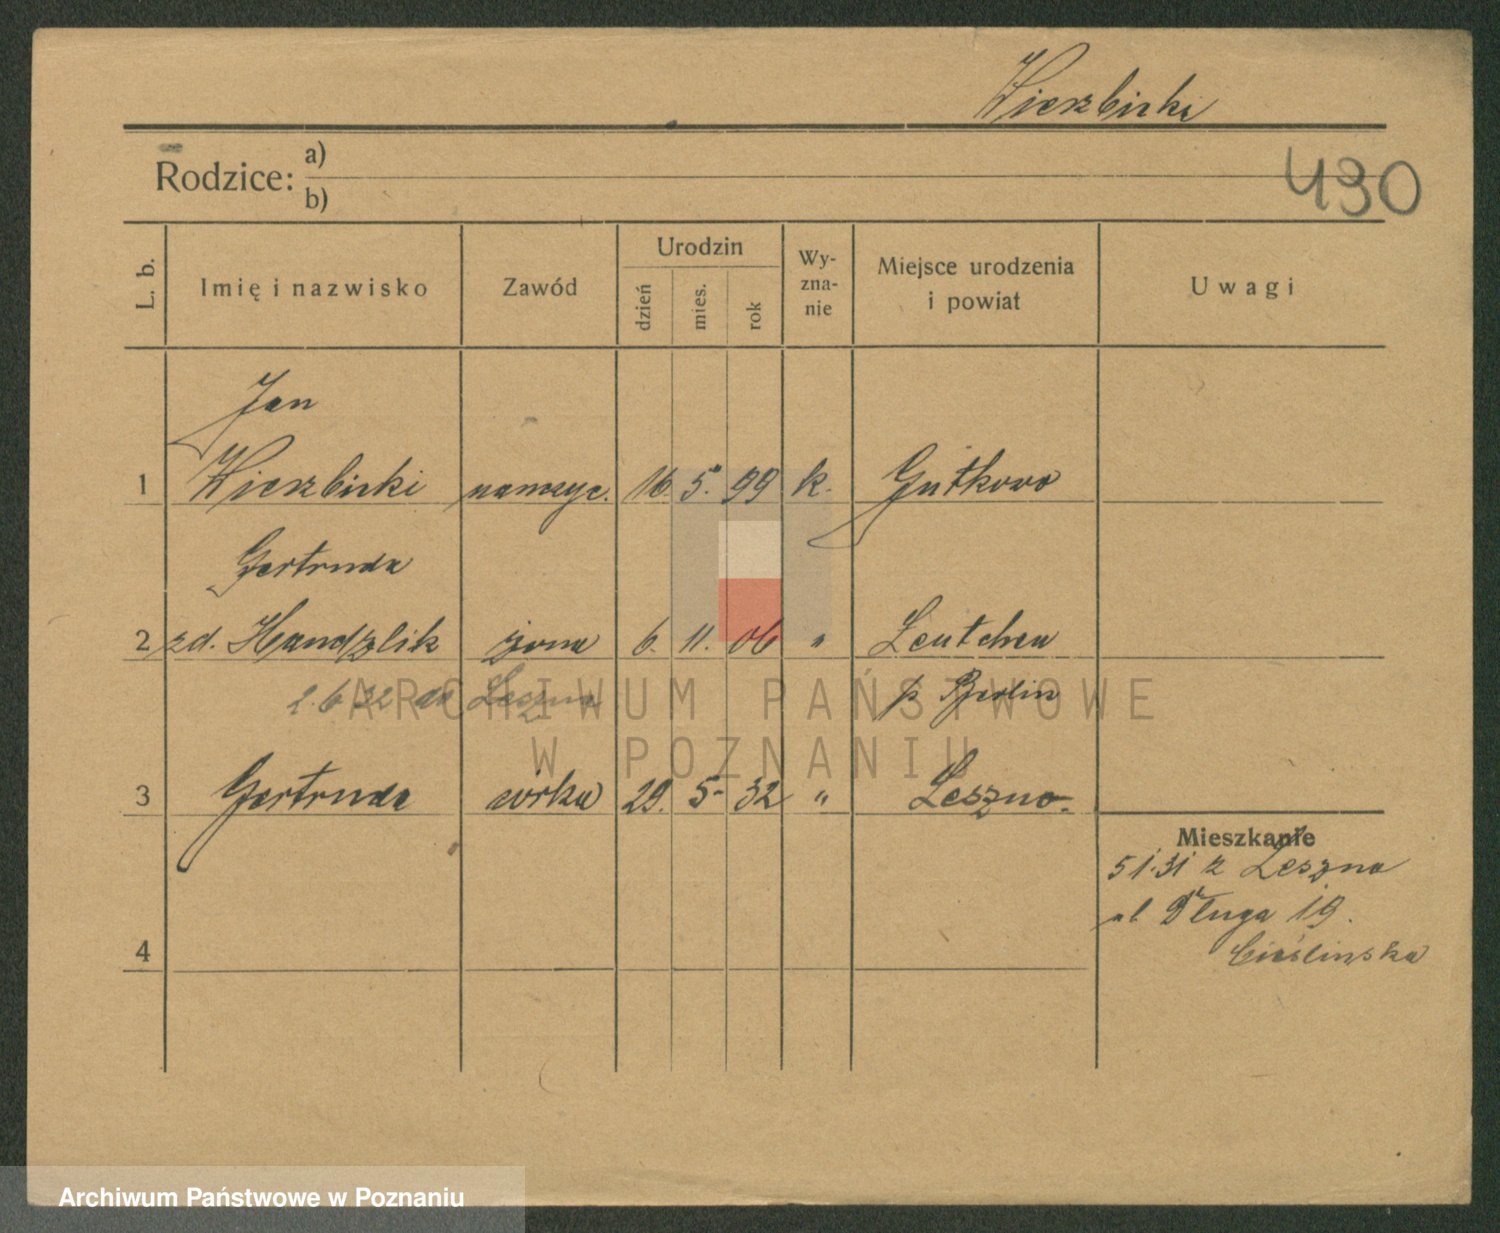 Wierzbicki
430
Rodzice: a)
b)
L. b.
Imię i nazwisko
Zawód
Urodzin
dzień
mies.
rok
Wy-
zna-
nie
Miejsce urodzenia
i powiat
Uwagi
Jan
1 Wierzbicki nauczyc. 16. 5. 99 k. Gutkowo
Gertruda
2 zd. Handzlik żona 6. 11. 06 " Leutchen
2.6.32 do Leszna p Berlin
3 Gertruda córka 29. 5. 32 " Leszno.
Mieszkanie
5 1.31 z Leszna
ul Długa 19.
Cieślinska
4
ARCHIWUM PAŃSTWOWE
W POZNANIU
Archiwum Państwowe w Poznaniu